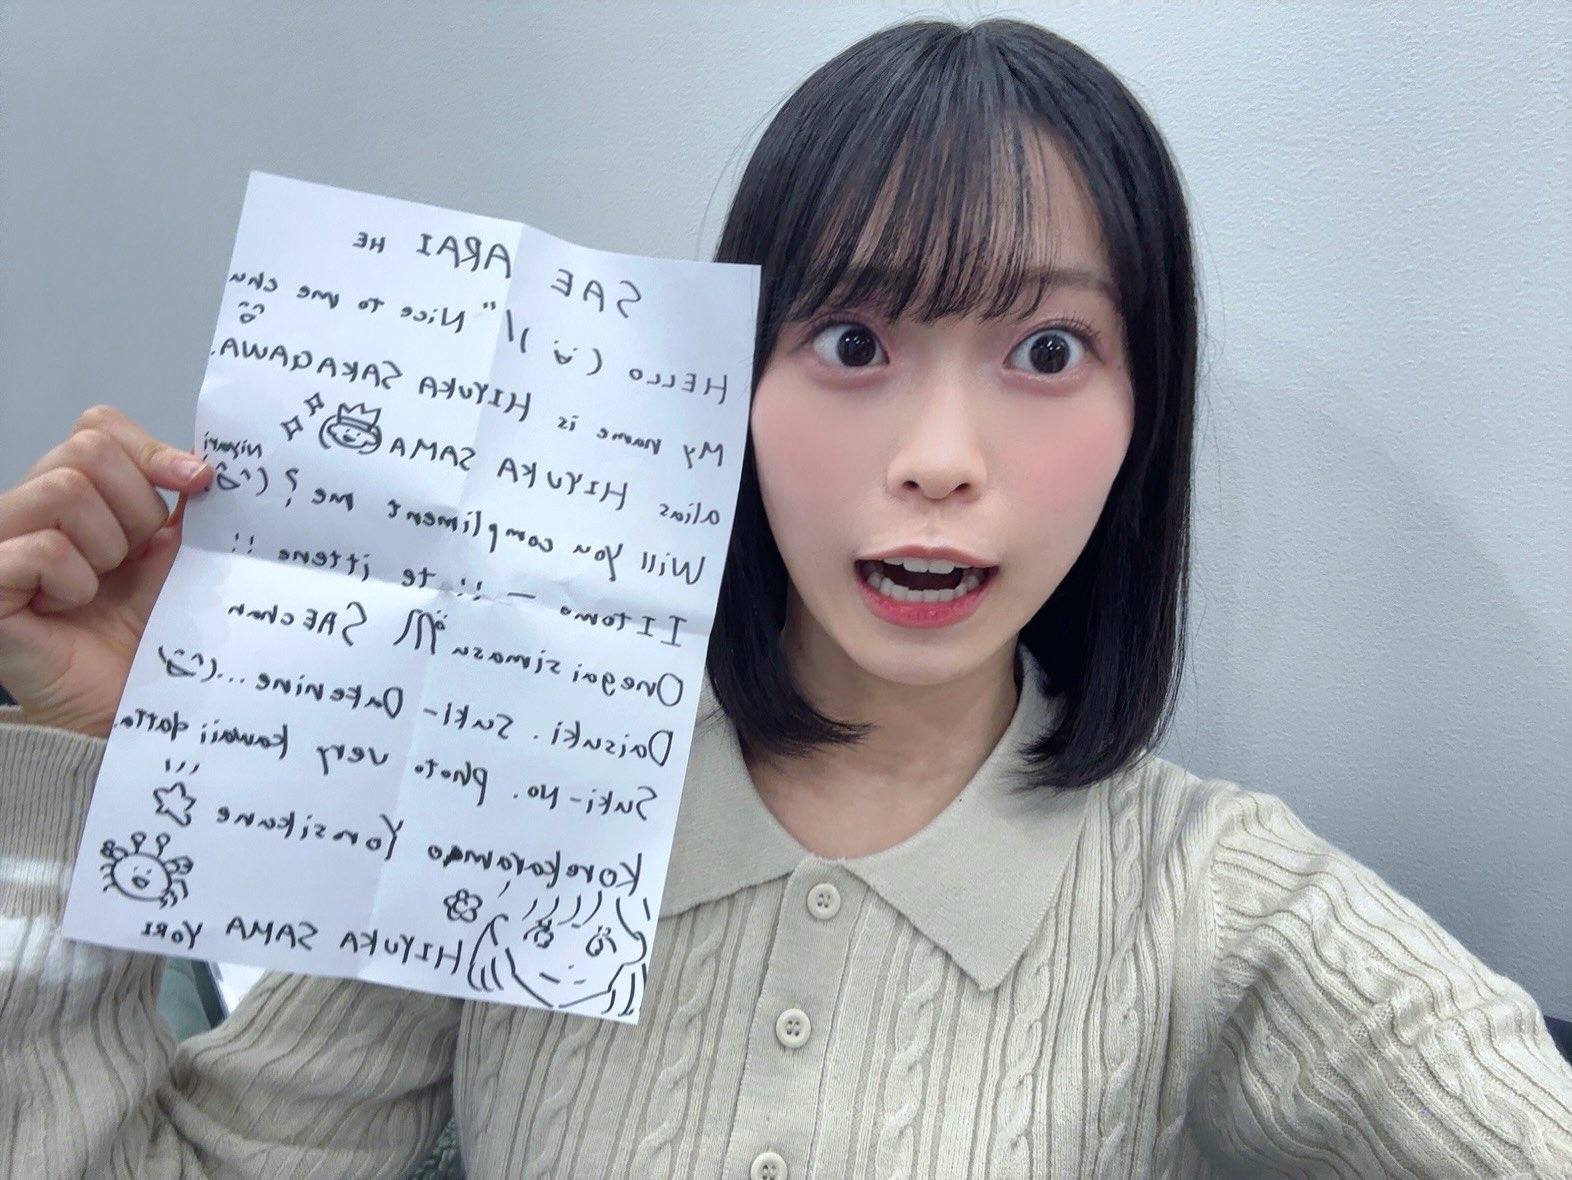 SAE ARAI HE
HELLO ( ) ") "Nice to me chu
My name is HIYUKA SAKAGAWA.
alias HIYUKA SAMA
Will you compliment me? niyari
IItomo — !! te ittene !!
Onegai simasu m SAE chan
Daisuki. Suki- Dakenine...
Suki-No. photo very kawaii datta.
Korekaramo Yorosikune
HIYUKA SAMA YORI